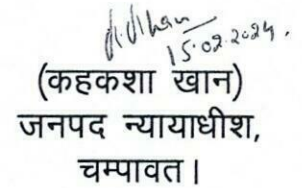 15.02.2024.
(कहकशा खान)
जनपद न्यायाधीश,
चम्पावत।